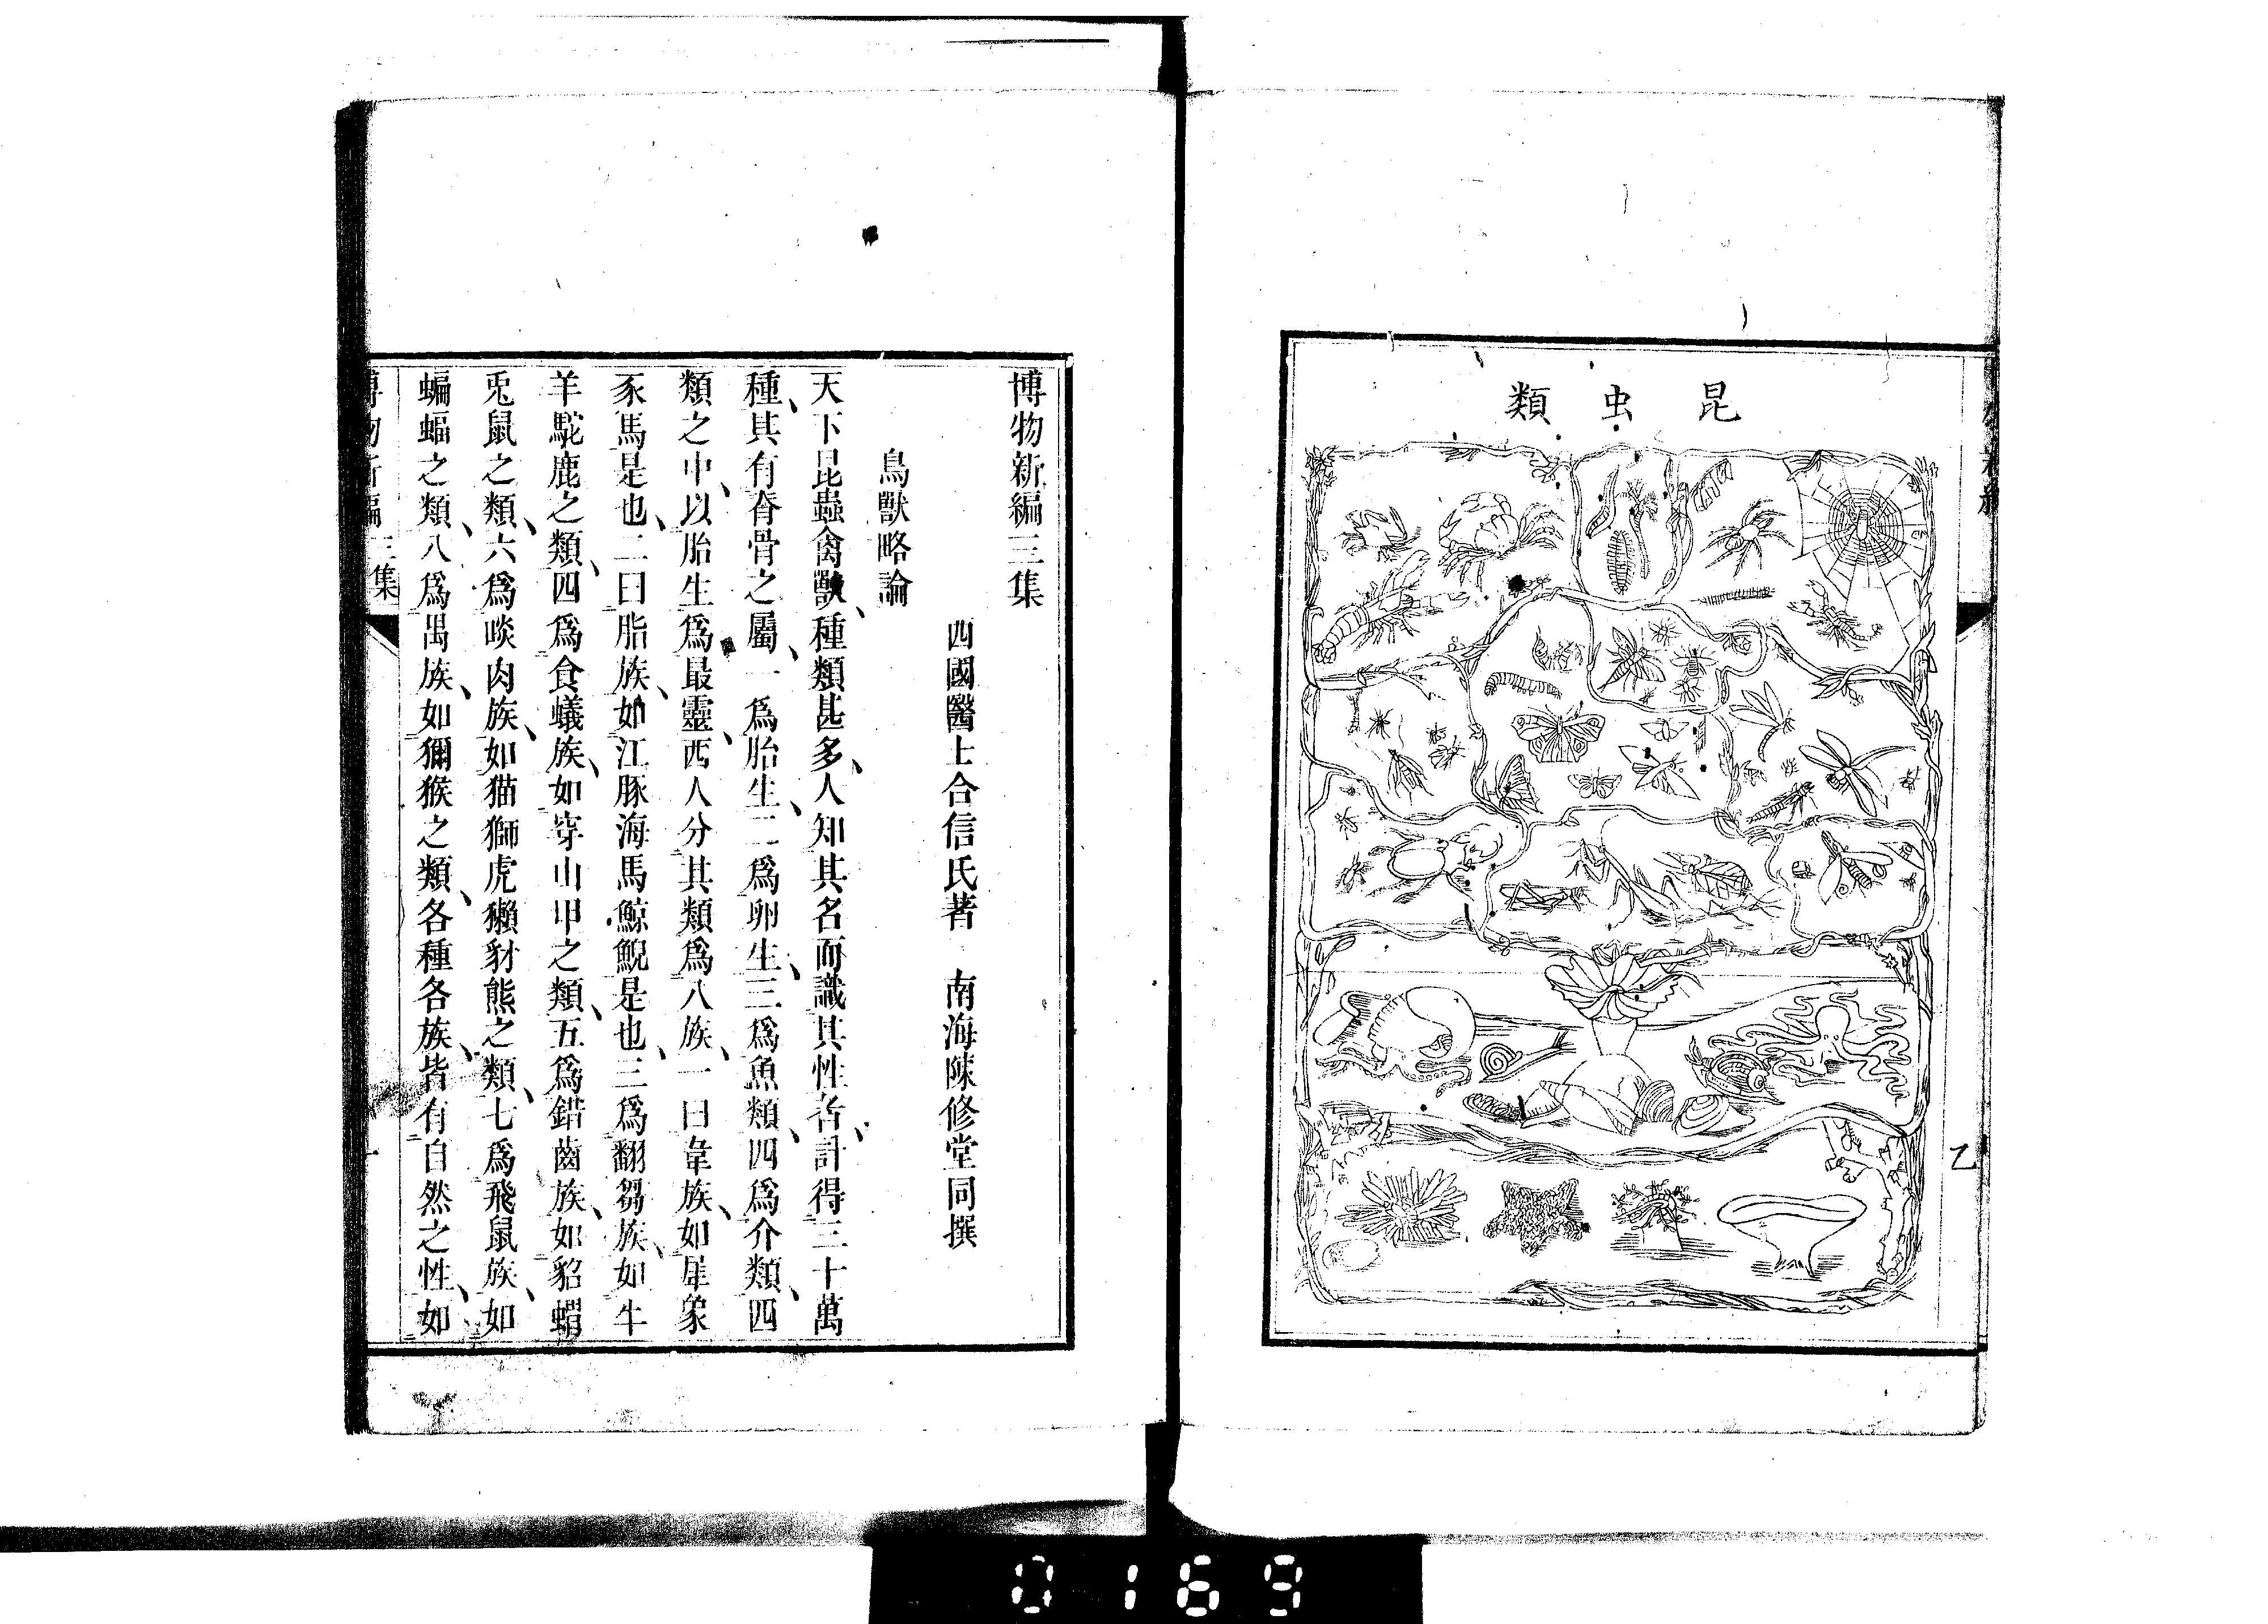 昆虫類
乙
博物新編三集
西國醫士合信氏著 南海陳修堂同撰
鳥獸略論
天下昆蟲禽獸、種類甚多、人知其名而識其性者、計得三十萬
種、其有脊骨之屬、一爲胎生、二爲卵生、三爲魚類、四爲介類、四
類之中、以胎生爲最靈、西人分其類爲八族、一曰韋族、如犀象
豕馬是也、二曰脂族、如江豚海馬鯨鯢是也、三爲翻芻族、如牛
羊駝鹿之類、四爲食蟻族、如穿山甲之類、五爲錯齒族、如貂蝟
兎鼠之類、六爲啖肉族、如猫獅虎獺豺熊之類、七爲飛鼠族、如
蝙蝠之類、八爲禺族、如獼猴之類、各種各族、皆有自然之性、如
博物新編三集 一
0169